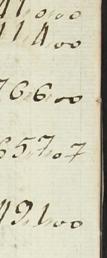 41.0.00
414.00
766.00
657.07
491.00